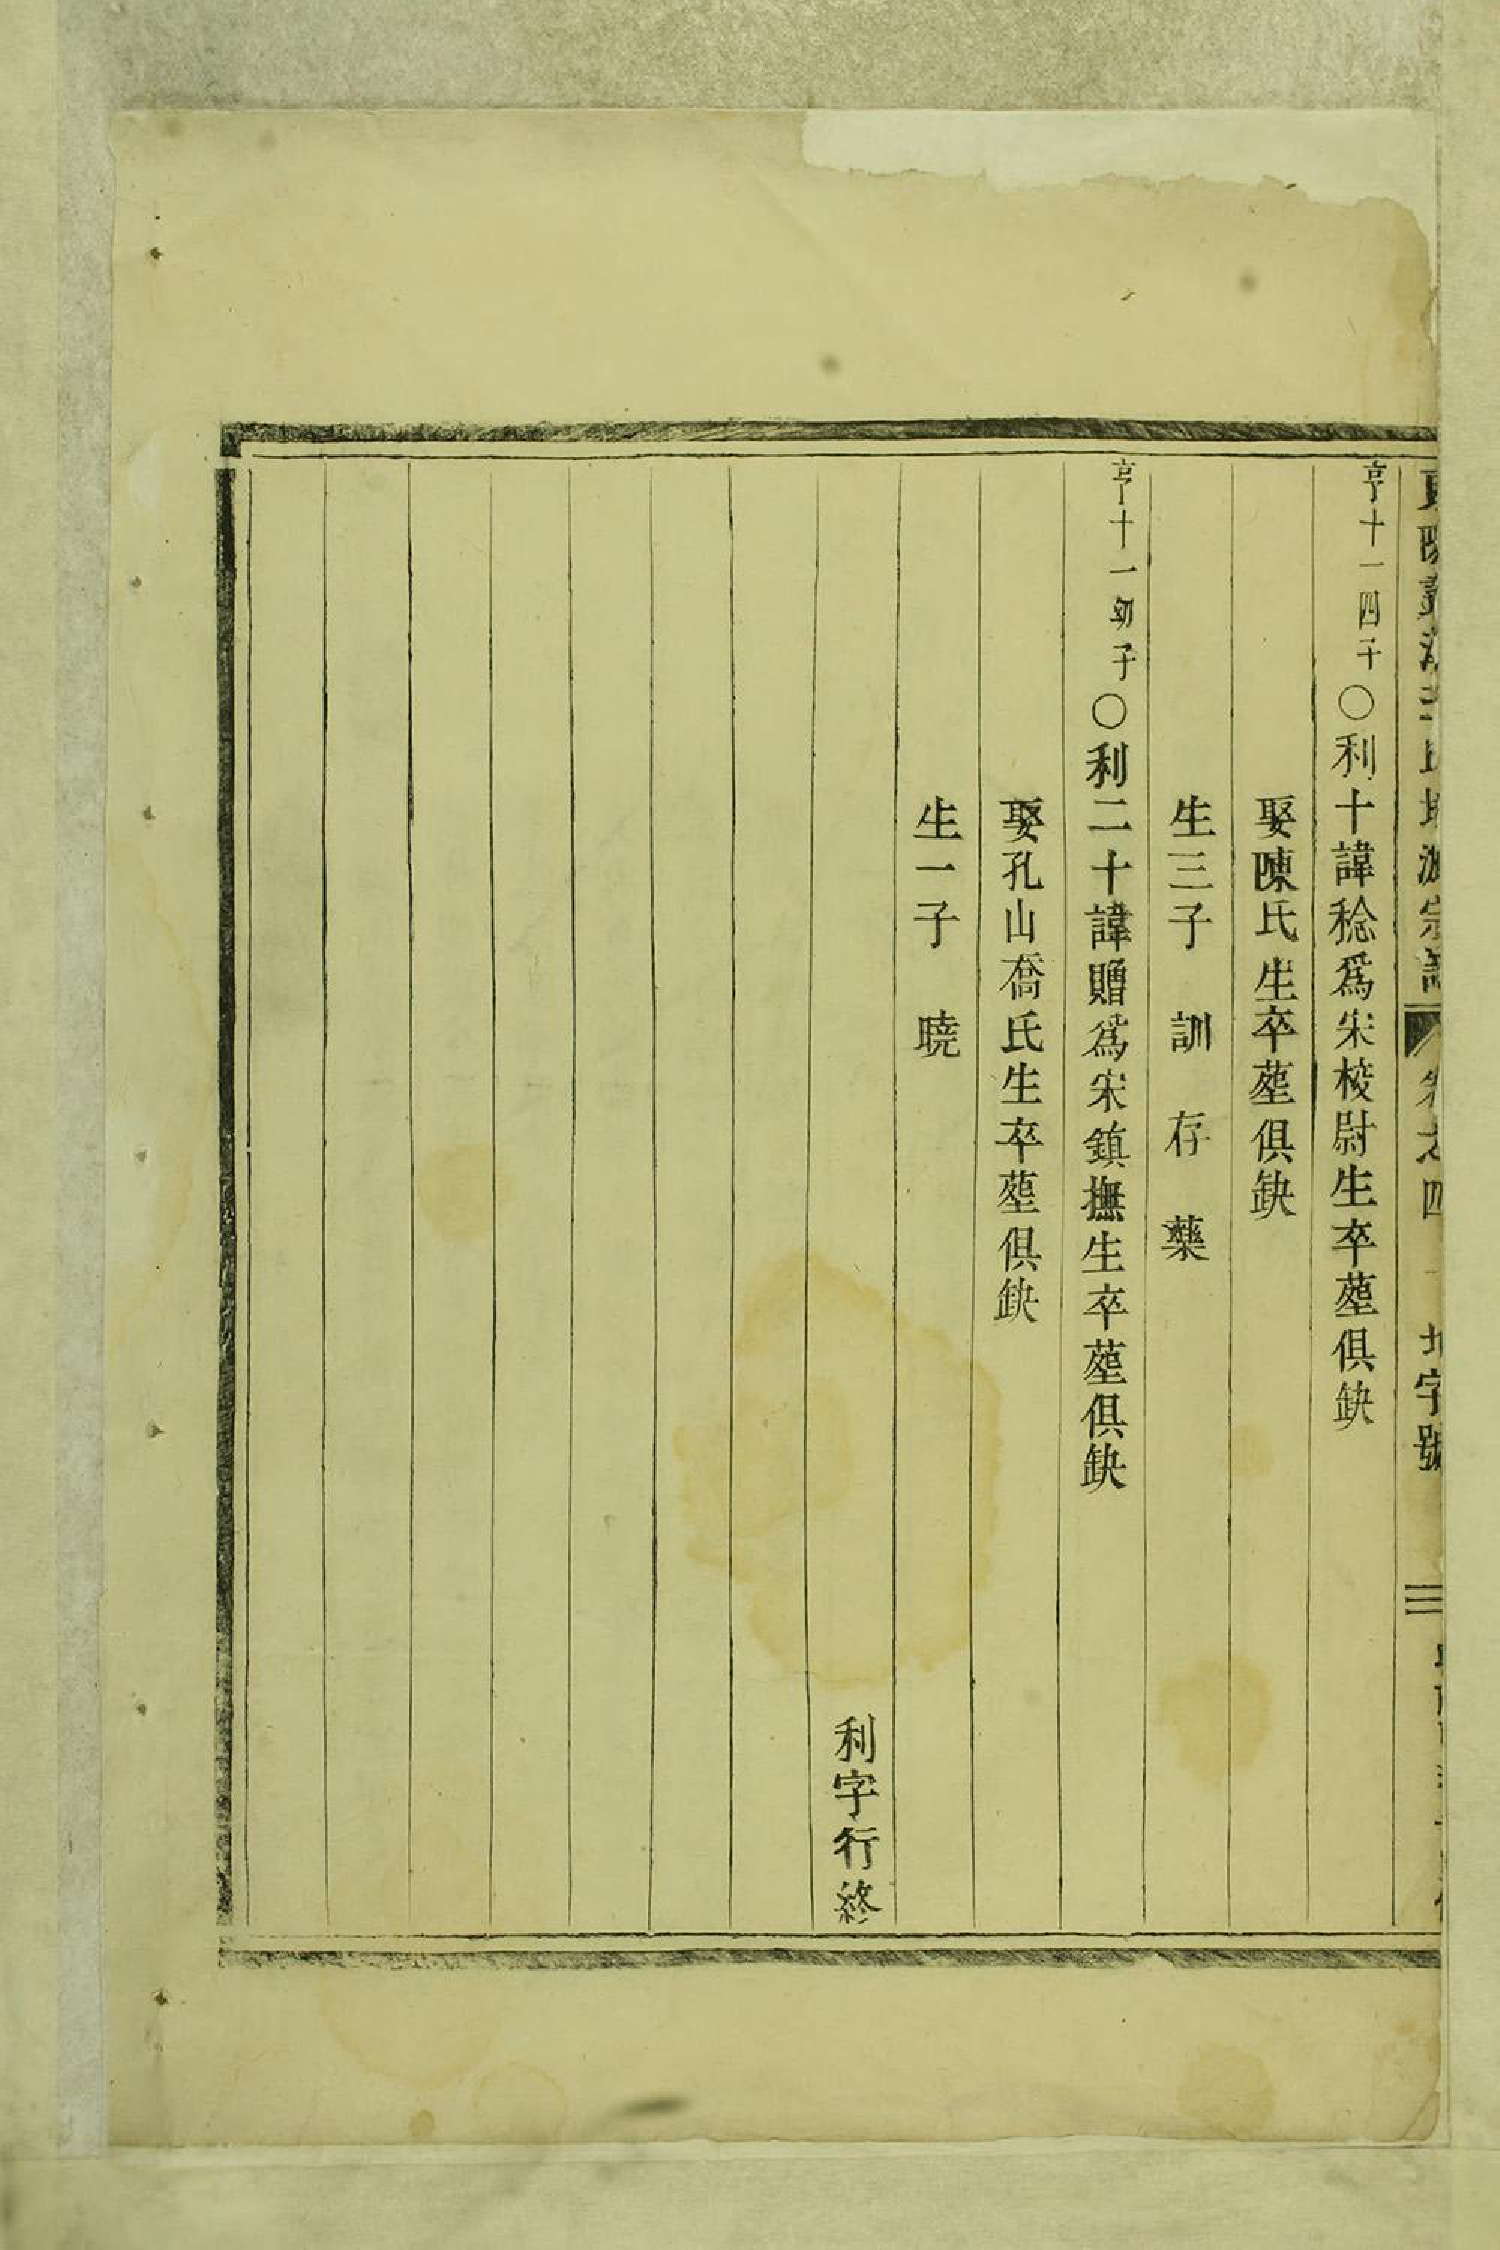 宗譜 卷之四 地字號
亨十一四子〇利十諱稔爲宋校尉生卒塟俱缺
娶陳氏生卒塟俱缺
生三子 訓 存 藥
亨十一幼子〇利二十諱贈爲宋鎮撫生卒塟俱缺
娶孔山喬氏生卒塟俱缺
生一子 曉
利字行終